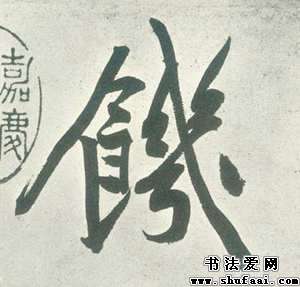 饑
嘉慶
书法爱网
www.shufaai.com